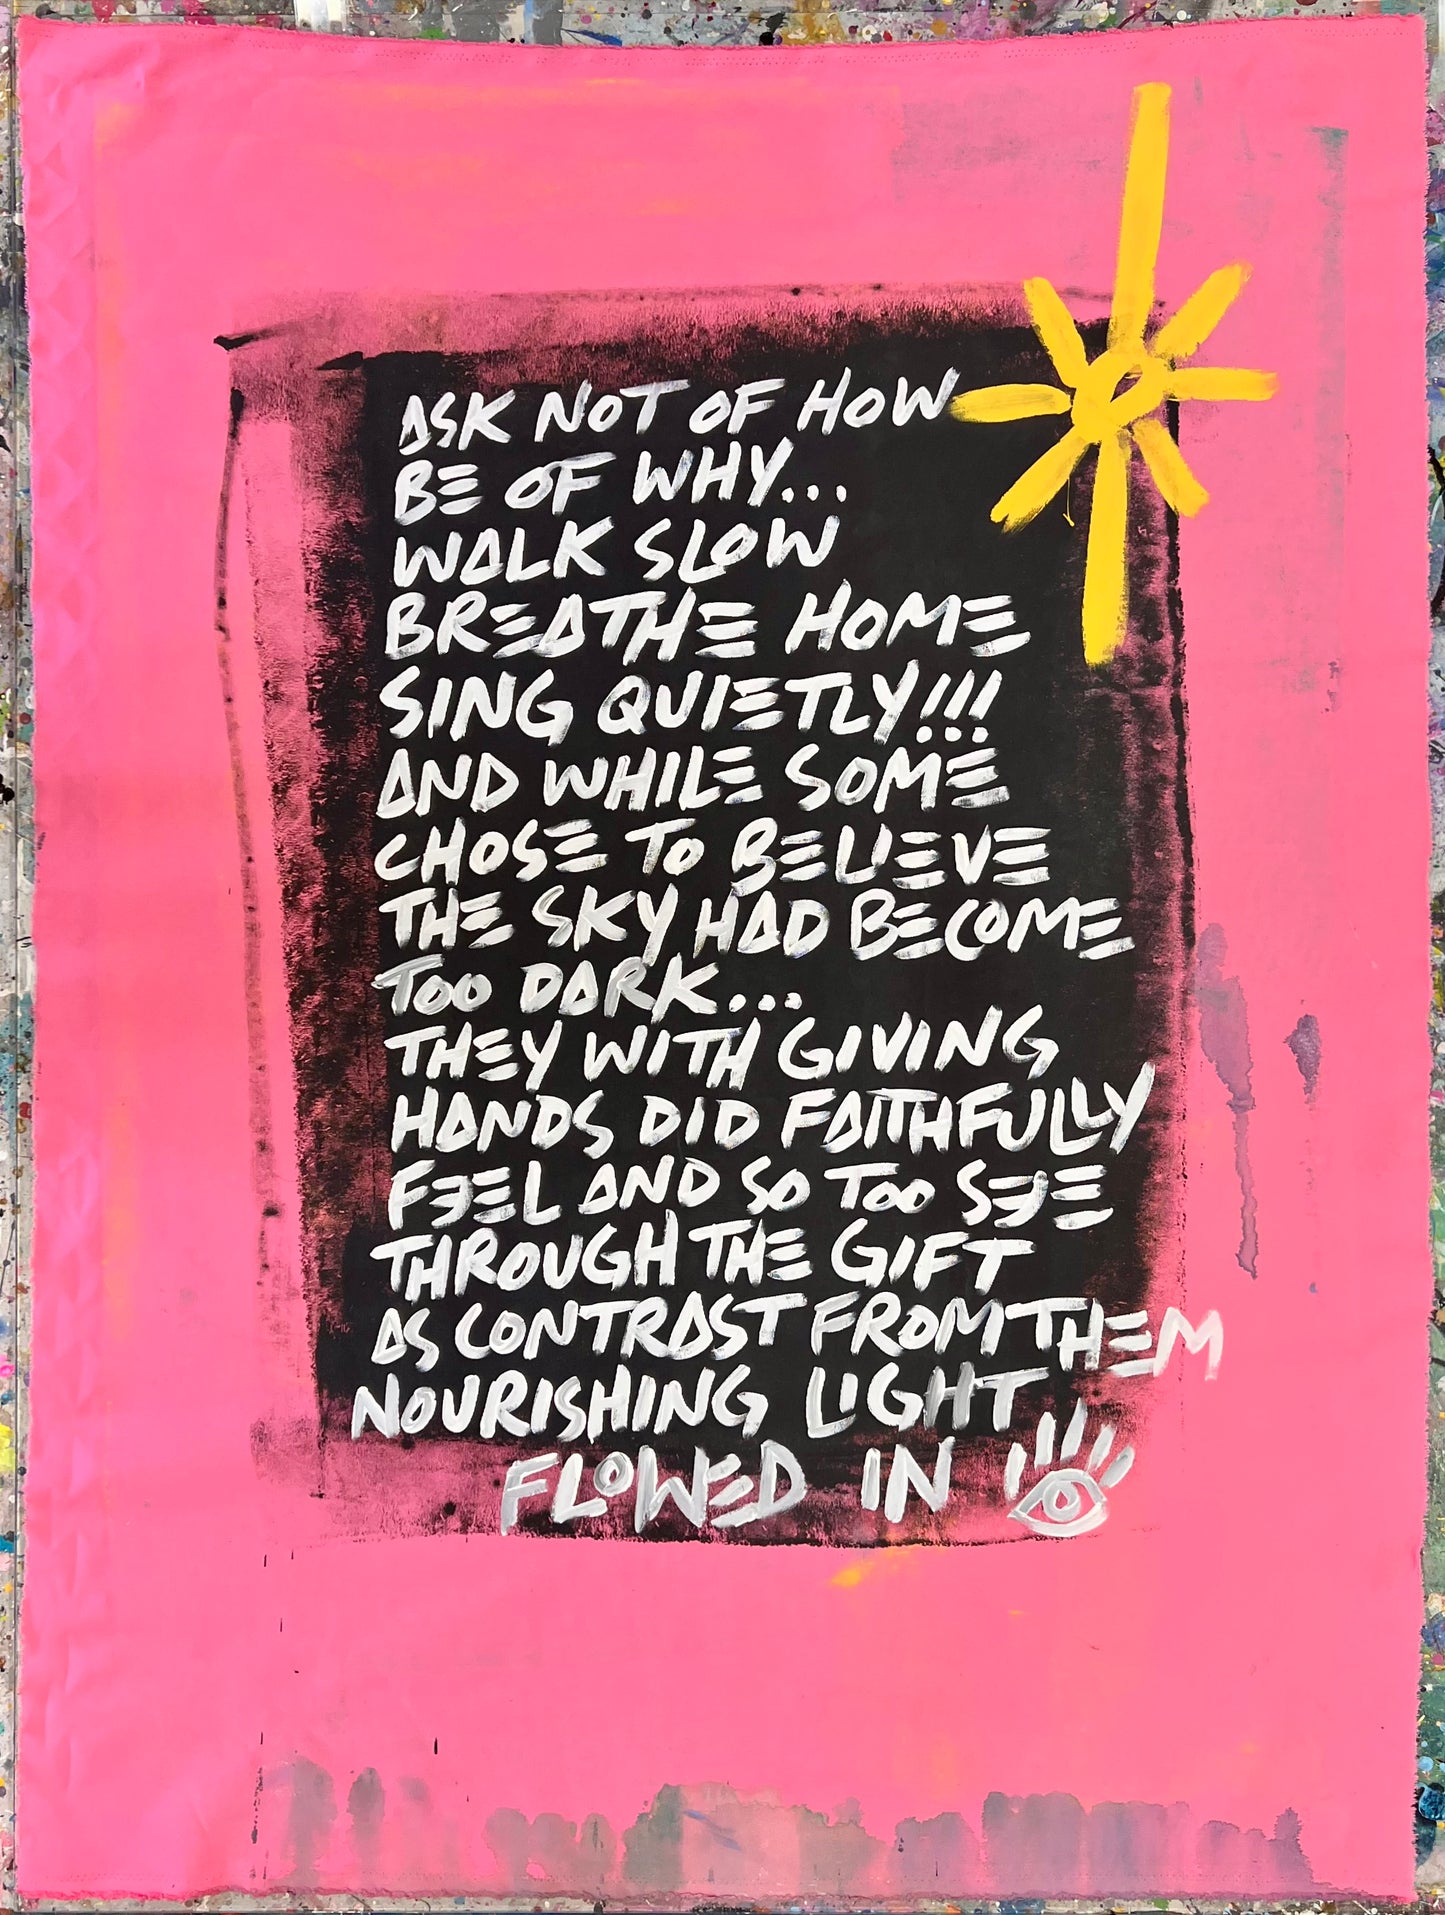 ASK NOT OF HOW
BE OF WHY...
WALK SLOW
BREATHE HOME
SING QUIETLY!!!
AND WHILE SOME
CHOSE TO BELIEVE
THE SKY HAD BECOME
TOO DARK...
THEY WITH GIVING
HANDS DID FAITHFULLY
FEEL AND SO TOO SEE
THROUGH THE GIFT
AS CONTRAST FROM THEM
NOURISHING LIGHT
FLOWED IN